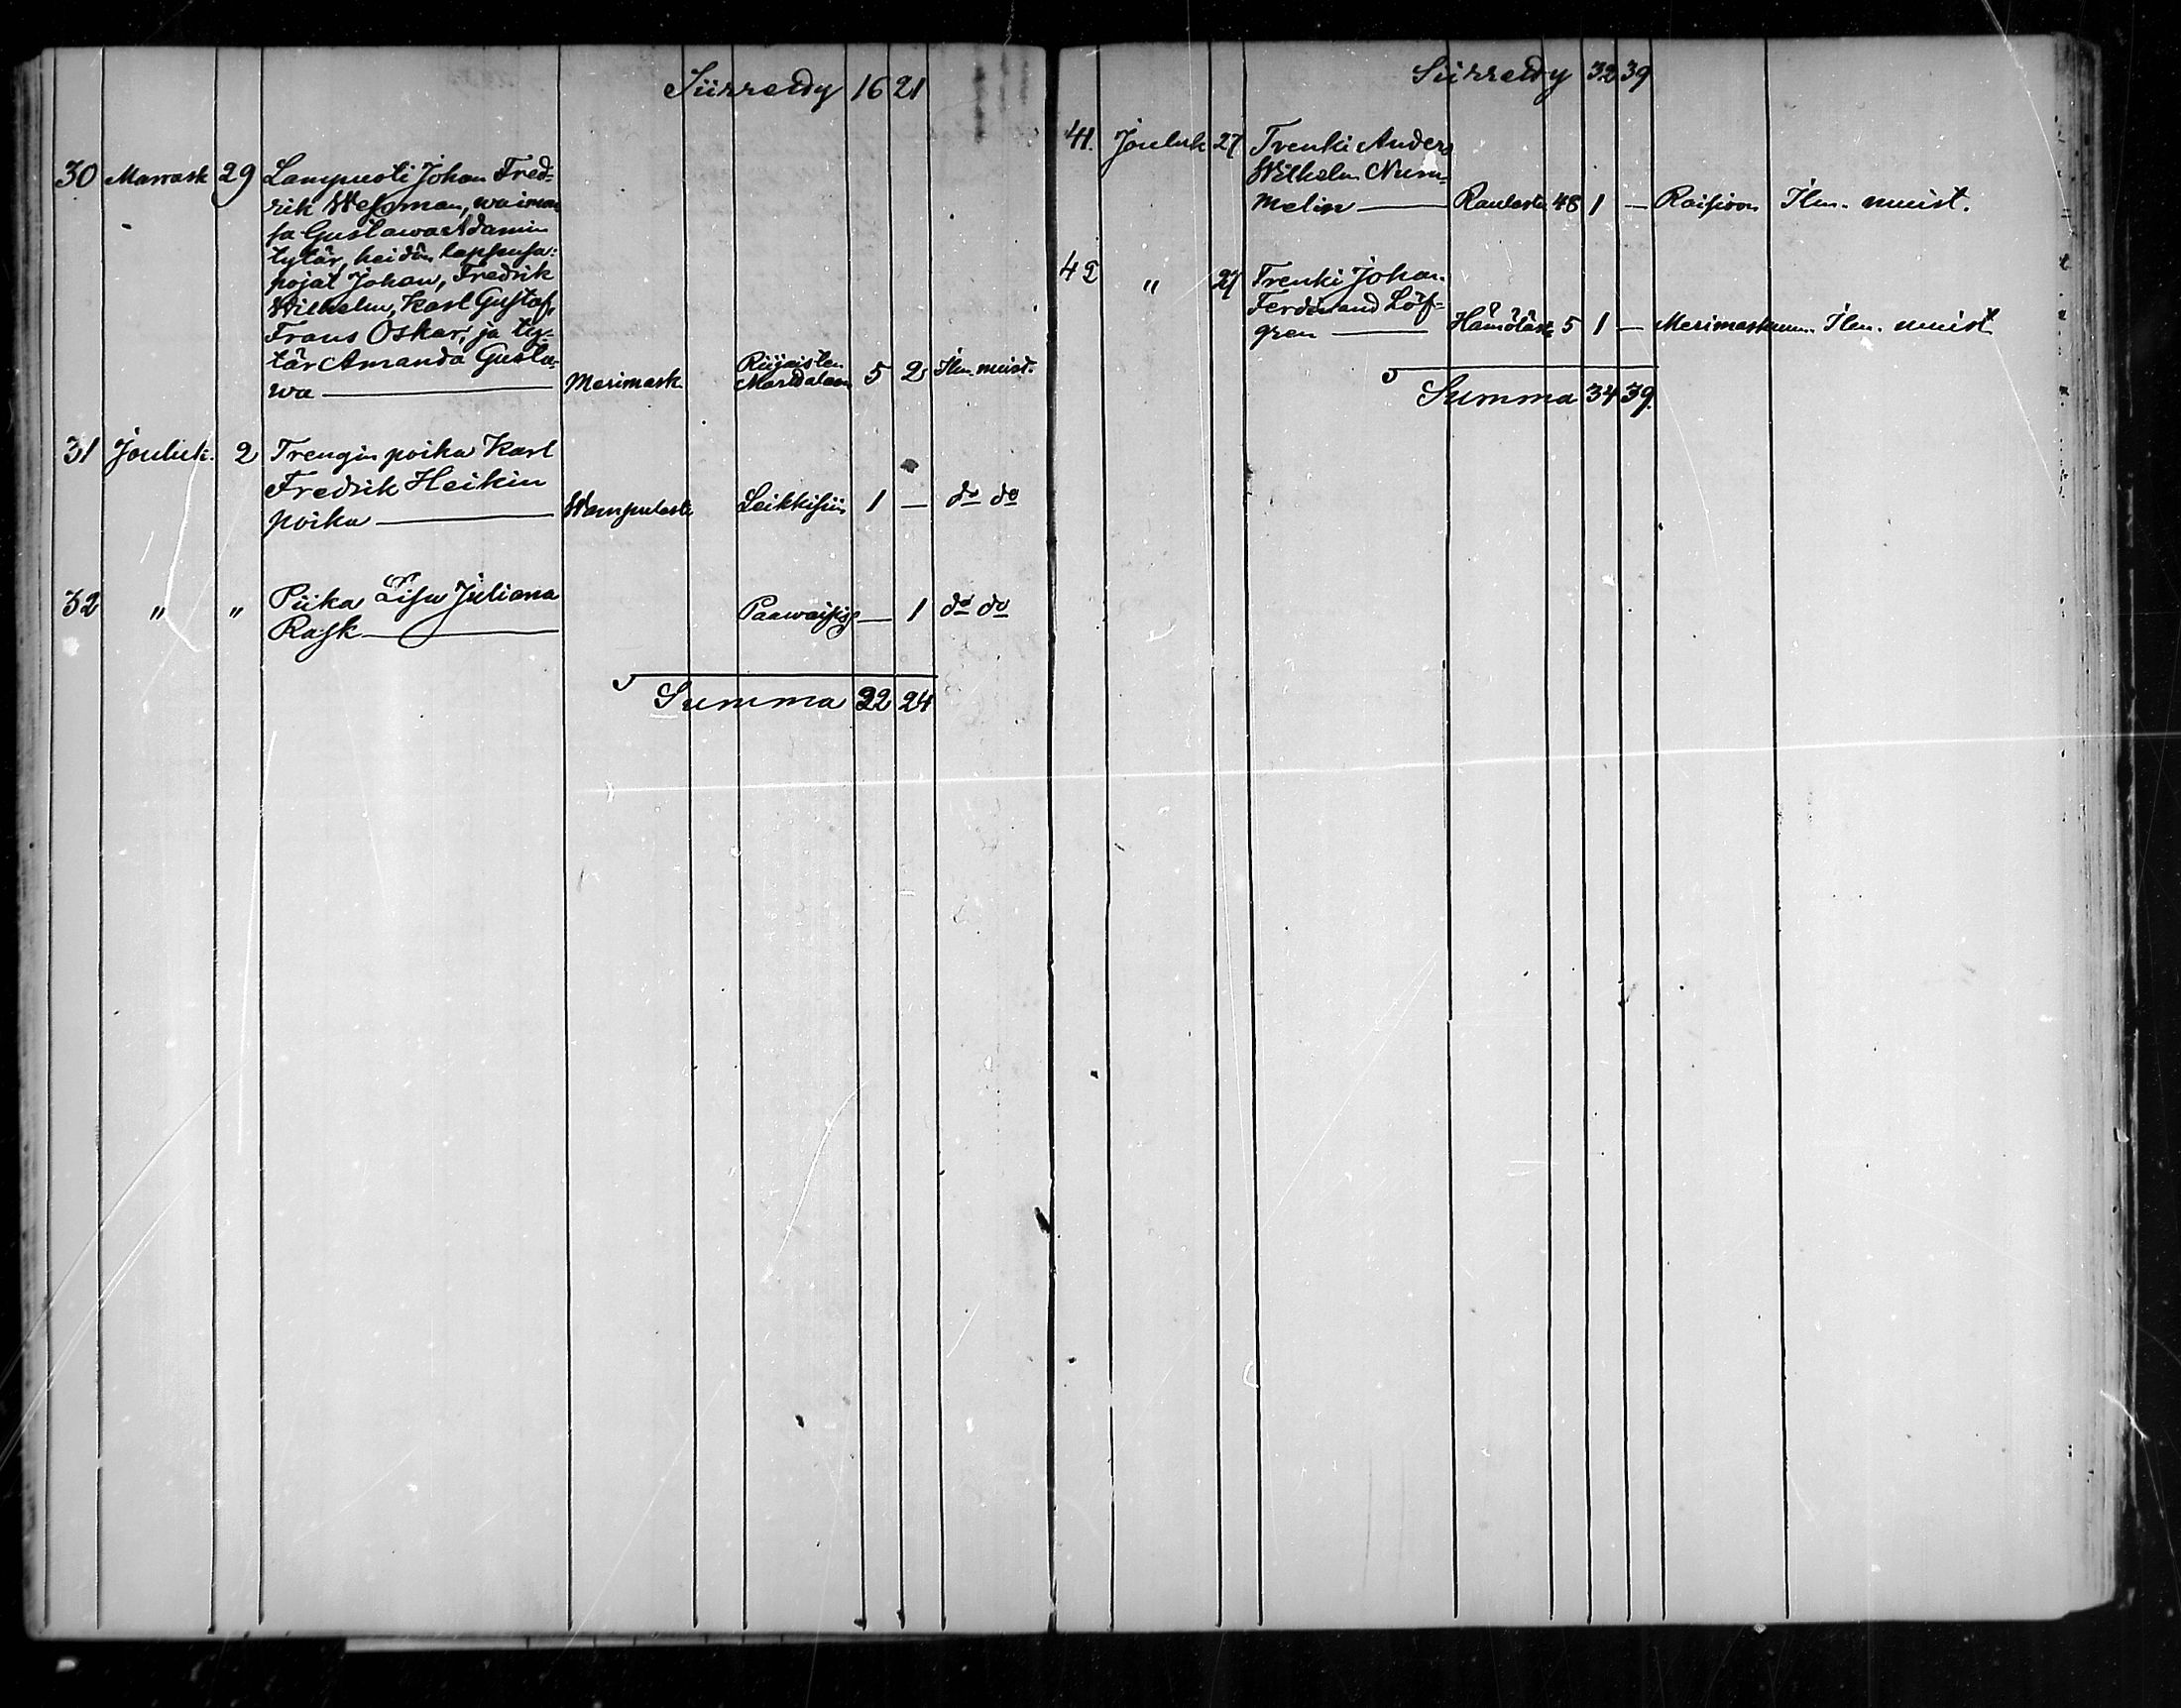 Siirretty 16 21
30 Marrask 29 Lampuoti Johan Fred-
rik Wessman, waimon-
sa Gustawa Adamin
tytär, heidän lapsensa:
pojat Johan, Fredrik
Wilhelm, Karl Gustaf,
Frans Oskar, ja ty-
tär Amanda Gusta-
wa — Merimask 5 2 Ilm. muist.
31 Jouluk. 2 Trengin poika Karl
Fredrik Heikin
poika — Wampulasta 1 — do do
32 " " Piika Lisa Juliana
Rask — 1 do do
Summa 22 24
Siirretty 32 39
41. Jouluk 27 Trenki Anders
Wilhelm Num-
melin — 48 1 — Raision Ilm. muist.
42 " 27 Trenki Johan
Ferdinand Löf-
gren — 5 1 — Merimaskuun Ilm. muist
Summa 34 39.